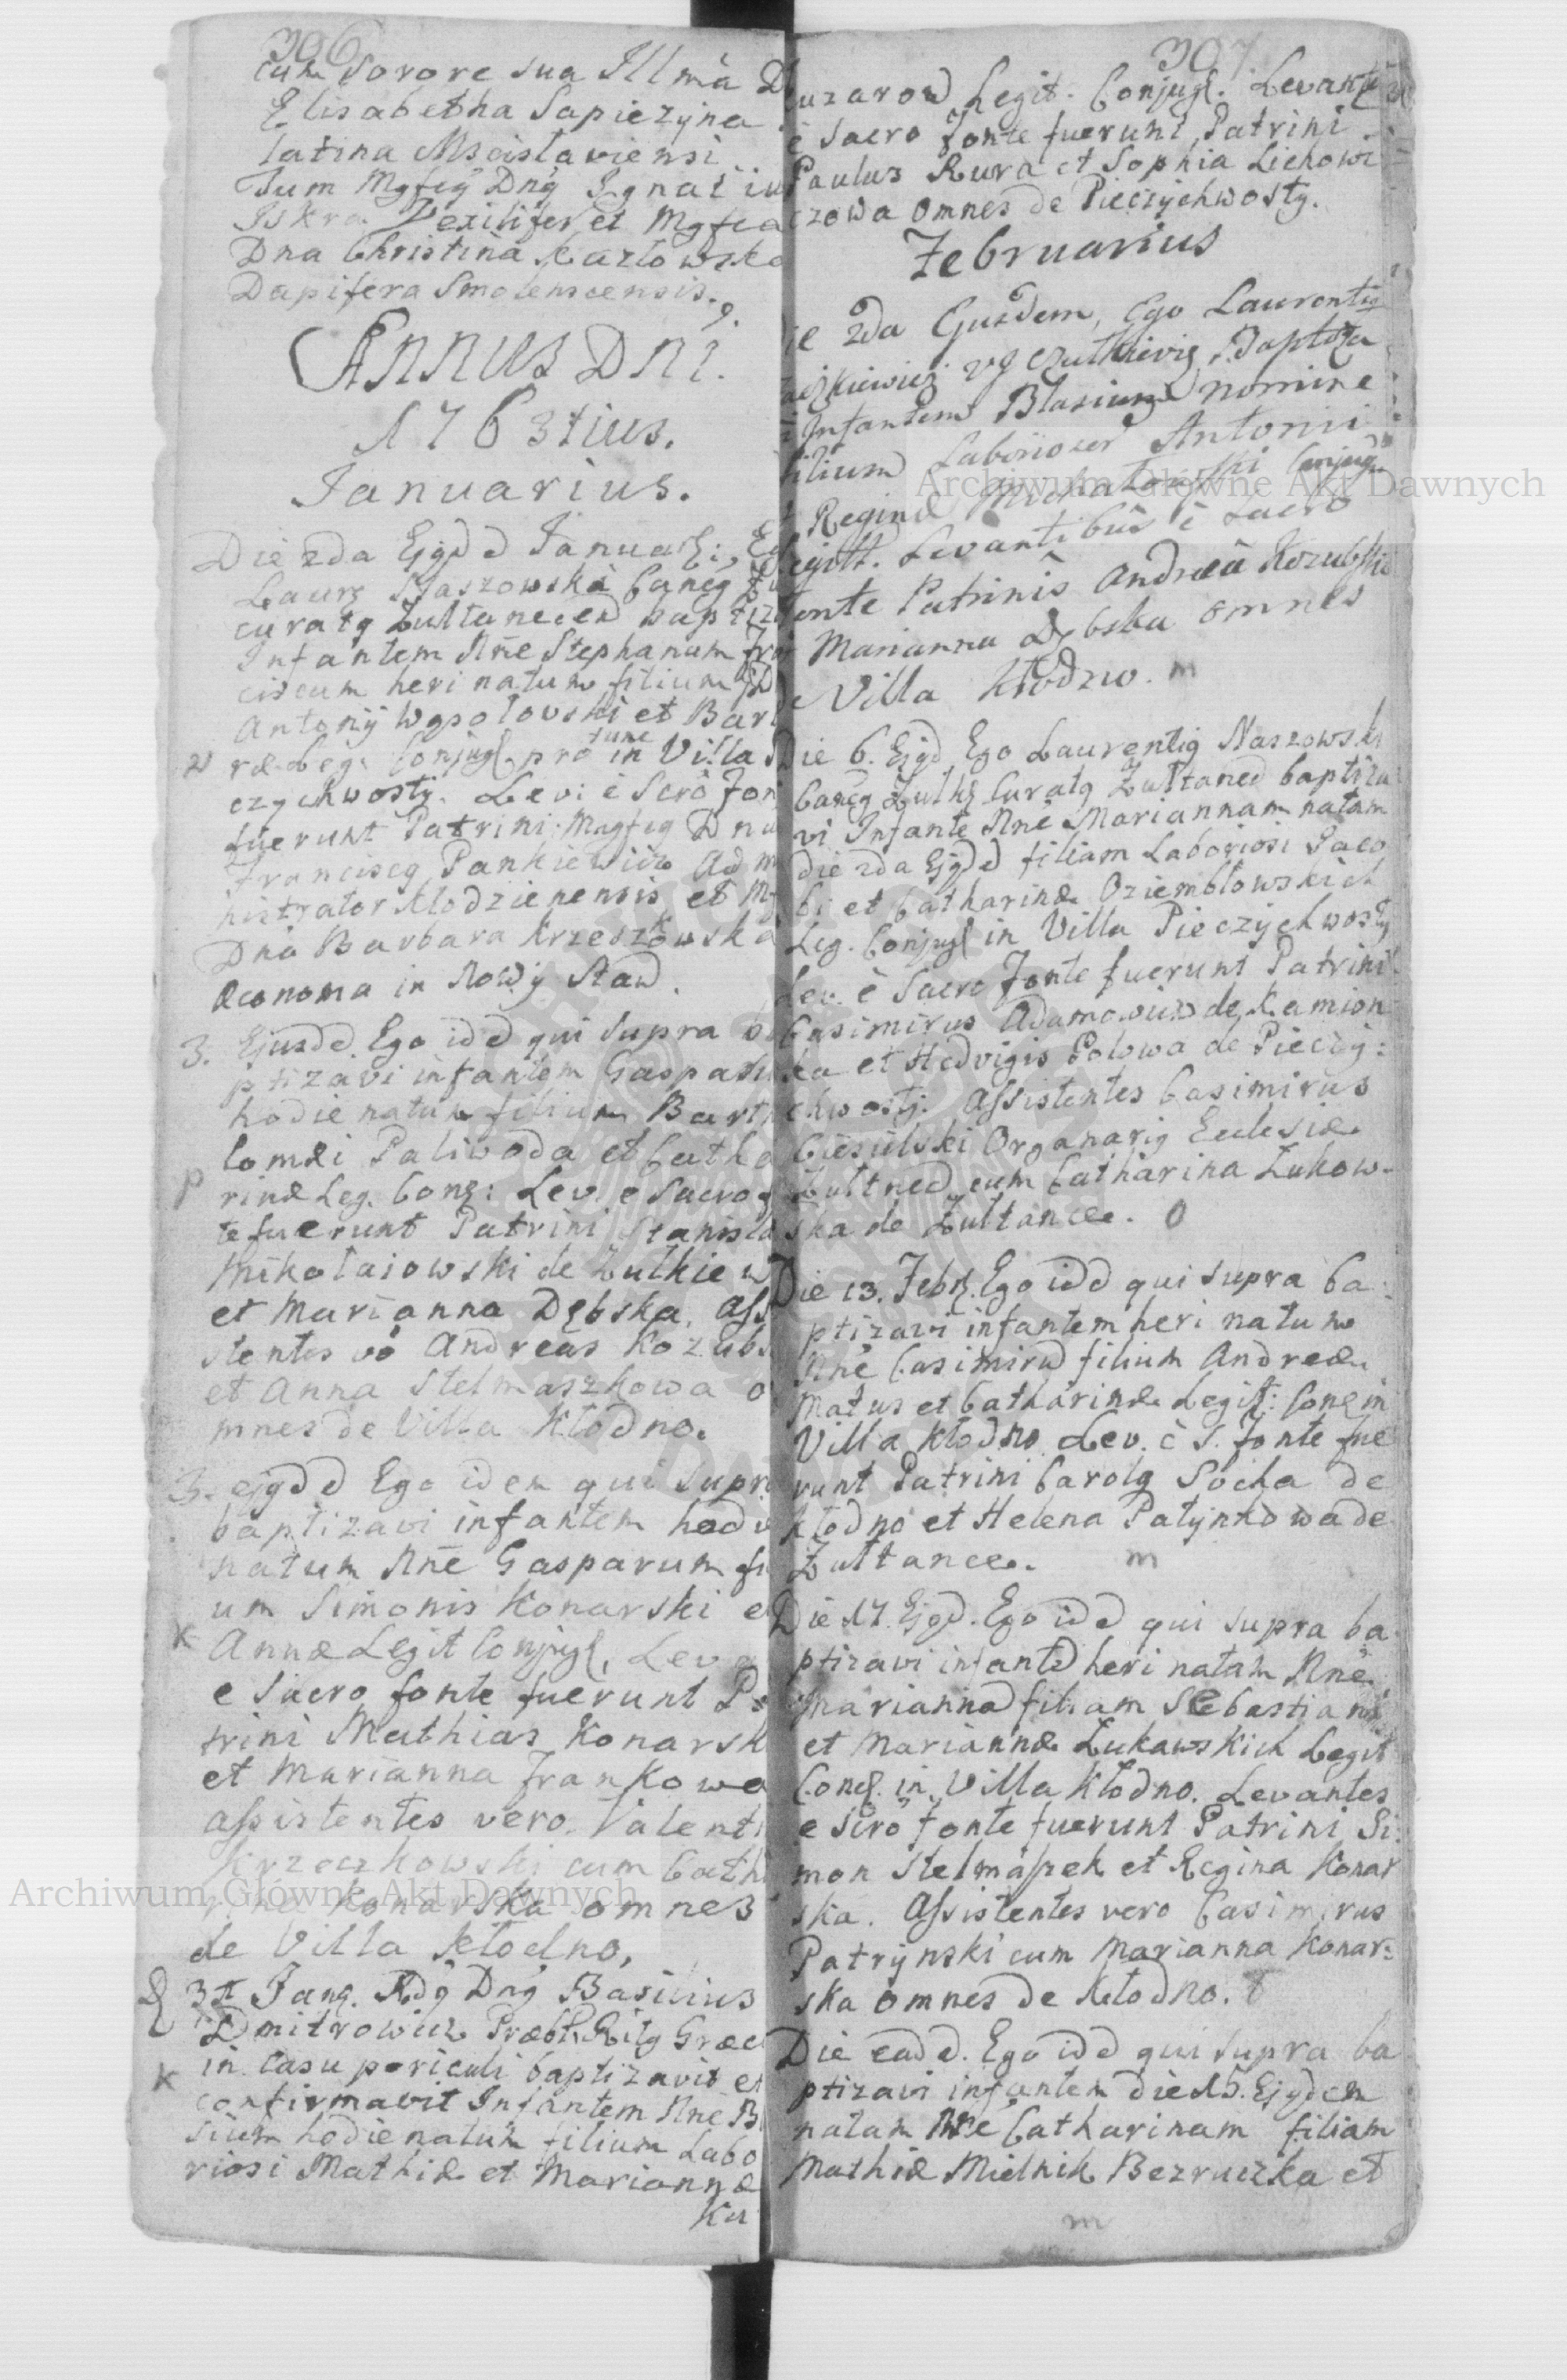 306
cum Sorore sua Illma
Elisabetha Sapiezyna
latina Mscislaviensi
Tum Mgfcq Dnq Ignatiu
Iskra Vexilifer et Mgfca
Dna Christina Kazłowska
Dapifera Smolenscensis.
Annus Dni.
1763tius.
Januarius.
Die 2da Ejqdd Januarii, Eg
Laurq Naszowski Caneq
curatq Zułtanecen baptiz
Infantem Nñe Stephanum Fran
ciscum heri natum filium
Antonij Wąsołowski et Bar
ræ Leg: Conjugl pro tunc in Villa
czychwosty. Lev: è Scrô Fon
fuerunt Patrini: Mngfcq Dnu
Franciscq Pankiewicz Adm
nistrator Kłodzienensis et Mg
Dna Barbara Krzesztowska
Æconoma in Nowy Staw.
3. Ejusdd. Ego idd qui supra ba
ptizavi infantem Gasparu
hodie natum filium Barth
lomæi Paliwoda et Catha
rinæ Leg. Conq: Lev. e Sacro f
te fuerunt Patrini Stanisla
Mikołaiowski de Zułkiew
et Marianna Dębska. Assi
stentes vo Andreas Kozubs
et Anna Stelmaszkowa o
mnes de Villa Kłodno.
3. ejqdd Ego idem qui supra
baptizavi infantem hodie
natum Nñe Gasparum fi
um Simonis Konarski e
K Annæ Legit Conjugl, Lev
e Sacro fonte fuerunt Pa
trini Mathias Konarsk
et Marianna Frankowa
assistentes vero Valenti
Krzeczkowski cum Cath
Konarska omnes
de Villa Kłodno,
31 Janq. Rdq Dnq Basilius
Dmitrowicz Præbt. Ritq Græc
K in casu periculi baptizavit et
confirmavit Infantem Nñe B
sium hodie natum filium Labo
riosi Mathiæ et Mariannæ
Ku
307
uzarow Legit. Conjugl. Levantes
è Sacro Fonte fuerunt Patrini
Paulus Kura et Sophia Lichowi
czowa omnes de Pieczychwosty.
Februarius
ie 2da Ejusdem, Ego Laurentiq
Infantem Blasium nomine
filium Laboriosor Antonii
Reginæ Michałowski Conjug
egitt. Levantibus è Sacro
fonte Patrinis Andrea Kozubski
Marianna Dębska omnes
Villa Kłodno. m
Die 6. Ejqd Ego Laurentiq Naszowski
Caneq Zułkq Curatq Zułtaned baptiza
vi Infante Nñe Mariannam natam
die 2da Ejqdd filiam Laboriosi Jaco
bi et Catharinæ Oziembłowskich
Leg. Conjugl in Villa Pieczychwosty
Lev. è Sacro Fonte fuerunt Patrini
Casimirus Adamowicz de Kamion
ka et Hedvigis Polowa de Pieczy:
chwosty. Assistentes Casimirus
Ciesielski Organariq Ecclesiæ
Zułtned cum Catharina Zukow-
ska de Zułtance. O
Die 13. Febrq. Ego idd qui supra ba:
ptizavi infantem heri natum
Nñe Casimirud filium Andreæ
Matus et Catharinæ Legit: Conq in
Villa Kłodno Lev. è S. Fonte fue
runt Patrini Carolq Socha de
Kłodno et Helena Patynkowa de
Zułtance. m
Die 17. Ejqd. Ego idd qui supra ba
ptizavi infantd heri natam Nñe
Mariannad filiam Sebastiani
et Mariannæ Łukawskich Legit
Conq. in Villa Kłodno. Levantes
e Scrô fonte fuerunt Patrini Si:
mon Stelmaszek et Regina Konar
ska. Assistentes vero Casimirus
Patrynski cum Marianna Konar:
ska omnes de Kłodno.
Die eadd. Ego idd qui supra ba
ptizavi infantem die 15. Ejqdem
natam Nñe Catharinam filiam
Mathiæ Mielnik Bezruczka et
m
Archiwum Główne Akt Dawnych
Archiwum Główne Akt Dawnych